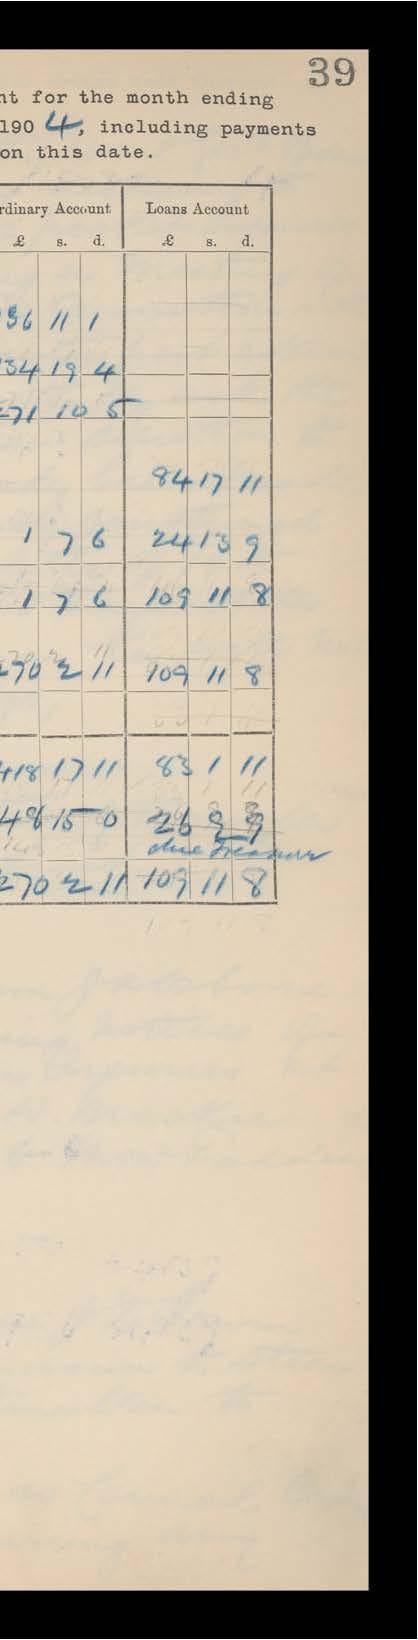 39
nt for the month ending
190 4, including payments
on this date.
rdinary Account Loans Account
£ s. d. £ s. d.
36 11 1
34 19 4
271 10 5
84 17 11
1 7 6 24 13 9
1 7 6 109 11 8
270 2 11 109 11 8
418 17 11 83 1 11
48 15 0 26 9 9
due Treasurer
270 2 11 109 11 8